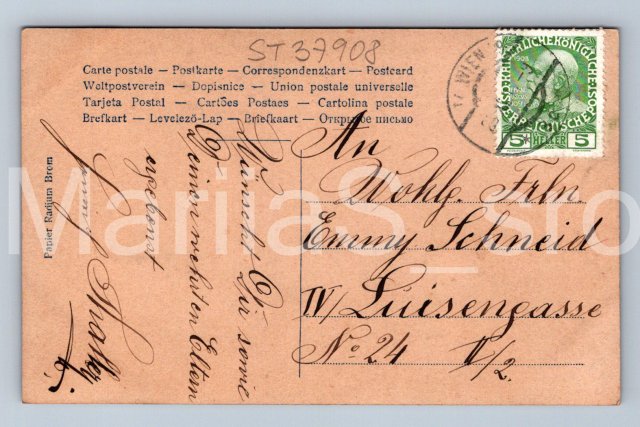 ST 37908
Carte postale – Postkarte – Correspondenzkart – Postcard
Weltpostverein – Dopisnice – Union postale universelle
Tarjeta Postal – Cartões Postaes – Cartolina postale
Brefkart – Levelező-Lap – Briefkaart – Открытое письмо
WIEN
5 HELLER 5
An
Wohlg. Frln
Emmy Schneid
IV Luisengasse
No 24 II/2.
Wünscht Dir sowie
Deinen wehrten Eltern
ergebenst
Papier Radium Brom
Marija's_store